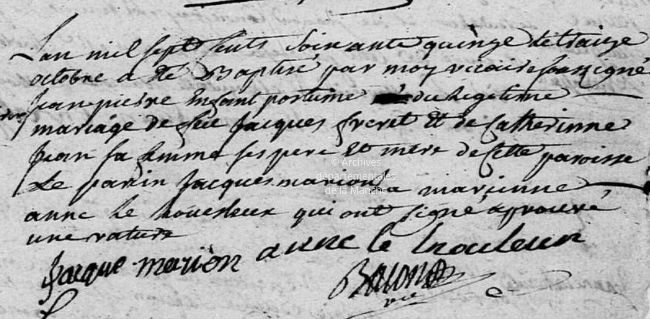 L'an mil sept cents soixante quinze le traize
octobre a été Baptisé par moy vicaire soussigné
jean pierre enfant postume du legitime
mariage de feu Jacques et de Catherinne
jean sa femme ses pere et mere de cette paroisse
Le parin Jacques marion la marienne
anne le houeleux qui ont signé aprouvé
une rature
jacque marion anne le houleux
© Archives
départementales
de la Manche